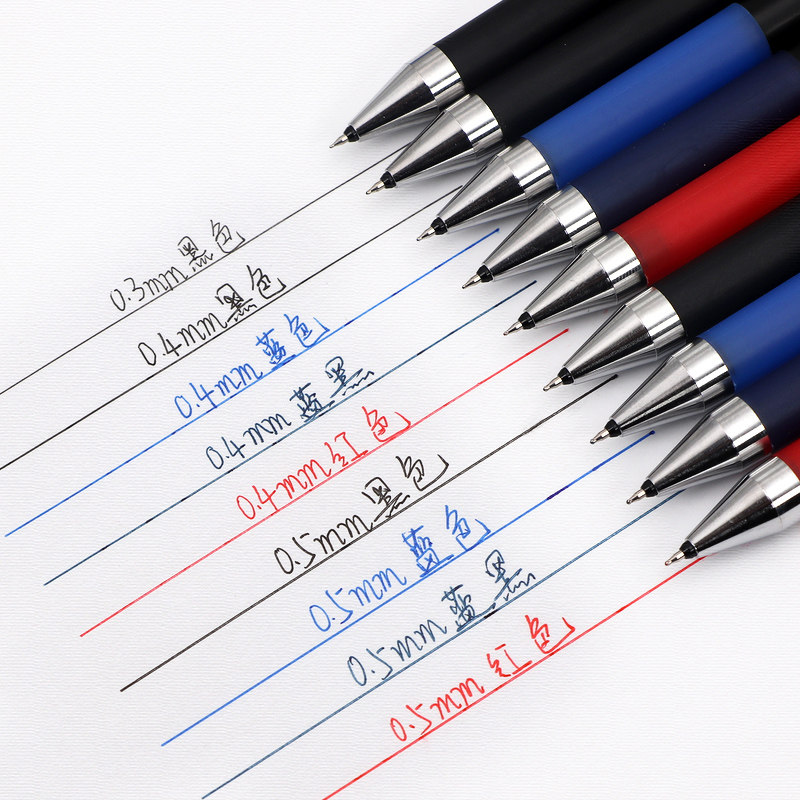 0.3mm黑色
0.4mm黑色
0.4mm蓝色
0.4mm蓝黑
0.4mm红色
0.5mm黑色
0.5mm蓝色
0.5mm蓝黑
0.5mm红色